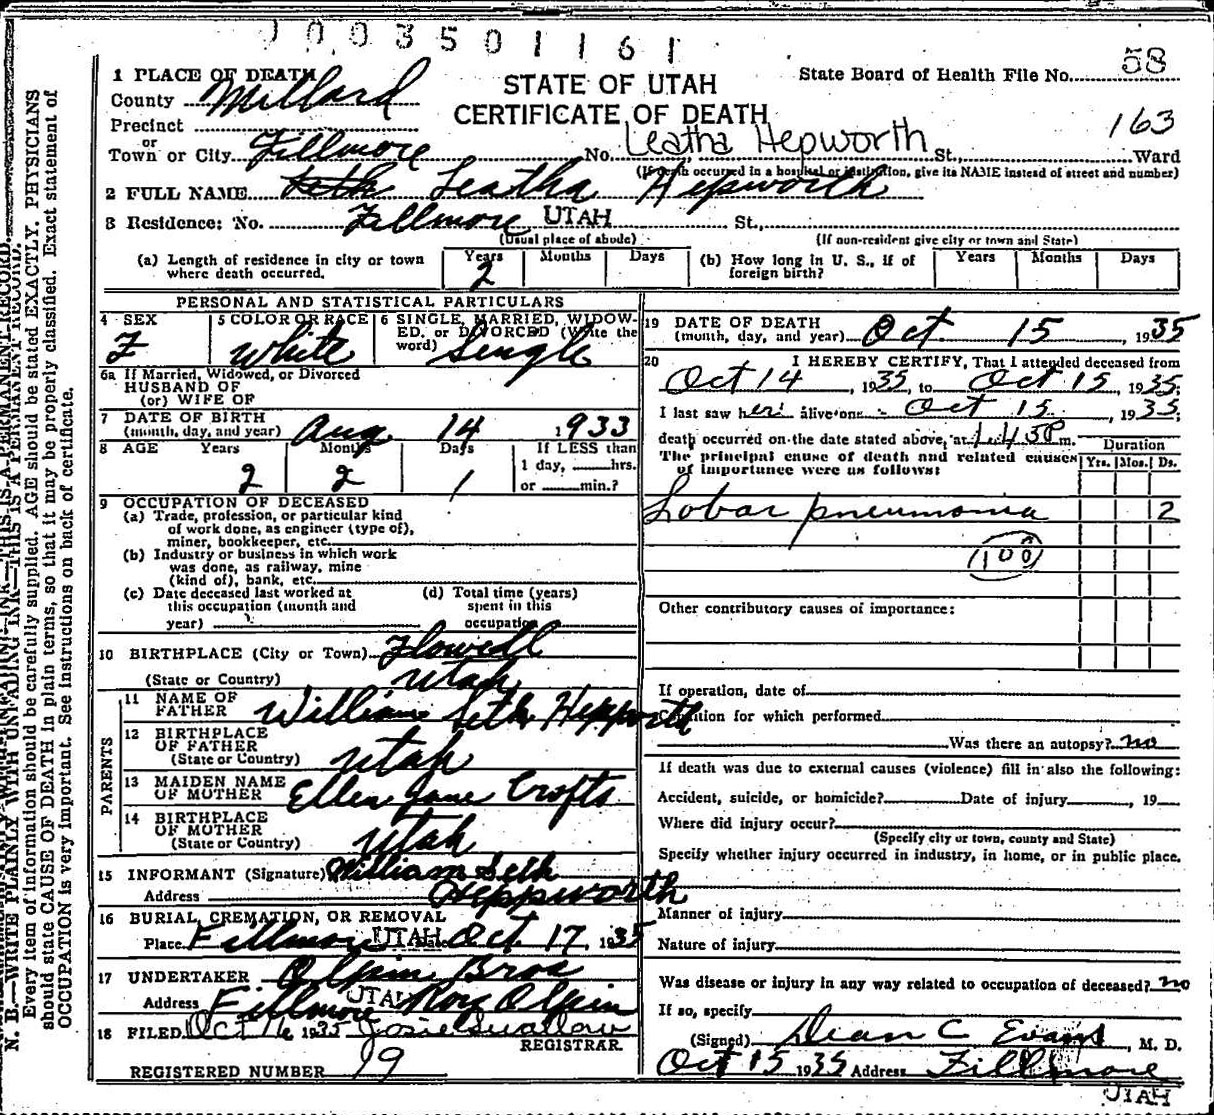 1003501161
58
1 PLACE OF DEATH
STATE OF UTAH
State Board of Health File No.
County Millard
CERTIFICATE OF DEATH
163
Precinct
or
Town or City Fillmore No. Leatha Hepworth St., Ward
(If death occurred in a hospital or institution, give its NAME instead of street and number)
2 FULL NAME Seth Leatha Hepworth
3 Residence: No. Fillmore UTAH St.,
(Usual place of abode) (If non-resident give city or town and State)
(a) Length of residence in city or town where death occurred. Years 2 Months Days
(b) How long in U. S., if of foreign birth? Years Months Days
PERSONAL AND STATISTICAL PARTICULARS
4 SEX F
5 COLOR OR RACE White
6 SINGLE, MARRIED, WIDOWED, or DIVORCED (Write the word) Single
6a If Married, Widowed, or Divorced
HUSBAND OF
(or) WIFE OF
7 DATE OF BIRTH
(month, day, and year) Aug 14 1933
8 AGE Years Months Days If LESS than
2 2 1 1 day, hrs.
or min.?
9 OCCUPATION OF DECEASED
(a) Trade, profession, or particular kind
of work done, as engineer (type of),
miner, bookkeeper, etc.
(b) Industry or business in which work
was done, as railway, mine
(kind of), bank, etc.
(c) Date deceased last worked at
this occupation (month and
year)
(d) Total time (years)
spent in this
occupation
10 BIRTHPLACE (City or Town) Flowell
(State or Country) Utah
PARENTS
11 NAME OF
FATHER William Seth Heppworth
12 BIRTHPLACE
OF FATHER
(State or Country) Utah
13 MAIDEN NAME
OF MOTHER Ellen Jane Crofts
14 BIRTHPLACE
OF MOTHER
(State or Country) Utah
15 INFORMANT (Signature) William Seth
Address Heppworth
16 BURIAL, CREMATION, OR REMOVAL
Place Fillmore UTAH Date Oct. 17, 1935
17 UNDERTAKER Olpin Bros
Address Fillmore UTAH Roy Olpin
18 FILED Oct 16 1935 Josie Swallow
REGISTRAR
REGISTERED NUMBER 19
19 DATE OF DEATH
(month, day, and year) Oct. 15, 1935
20 I HEREBY CERTIFY, That I attended deceased from
Oct 14, 1935, to Oct 15, 1935;
I last saw her alive on Oct 15, 1935;
death occurred on the date stated above, at 1:45P m.
The principal cause of death and related causes
of importance were as follows:
Duration
Yrs. Mos. Ds.
Lobar pneumonia 2
100
Other contributory causes of importance:
If operation, date of
Condition for which performed
Was there an autopsy? no
If death was due to external causes (violence) fill in also the following:
Accident, suicide, or homicide? Date of injury , 19
Where did injury occur?
(Specify city or town, county and State)
Specify whether injury occurred in industry, in home, or in public place.
Manner of injury
Nature of injury
Was disease or injury in any way related to occupation of deceased? no
If so, specify
(Signed) Dean C Evans, M. D.
Oct 15 1935 Address Fillmore
UTAH
N. B.—WRITE PLAINLY WITH UNFADING INK—THIS IS A PERMANENT RECORD.
Every item of information should be carefully supplied. AGE should be stated EXACTLY. PHYSICIANS
should state CAUSE OF DEATH in plain terms, so that it may be properly classified. Exact statement of
OCCUPATION is very important. See instructions on back of certificate.